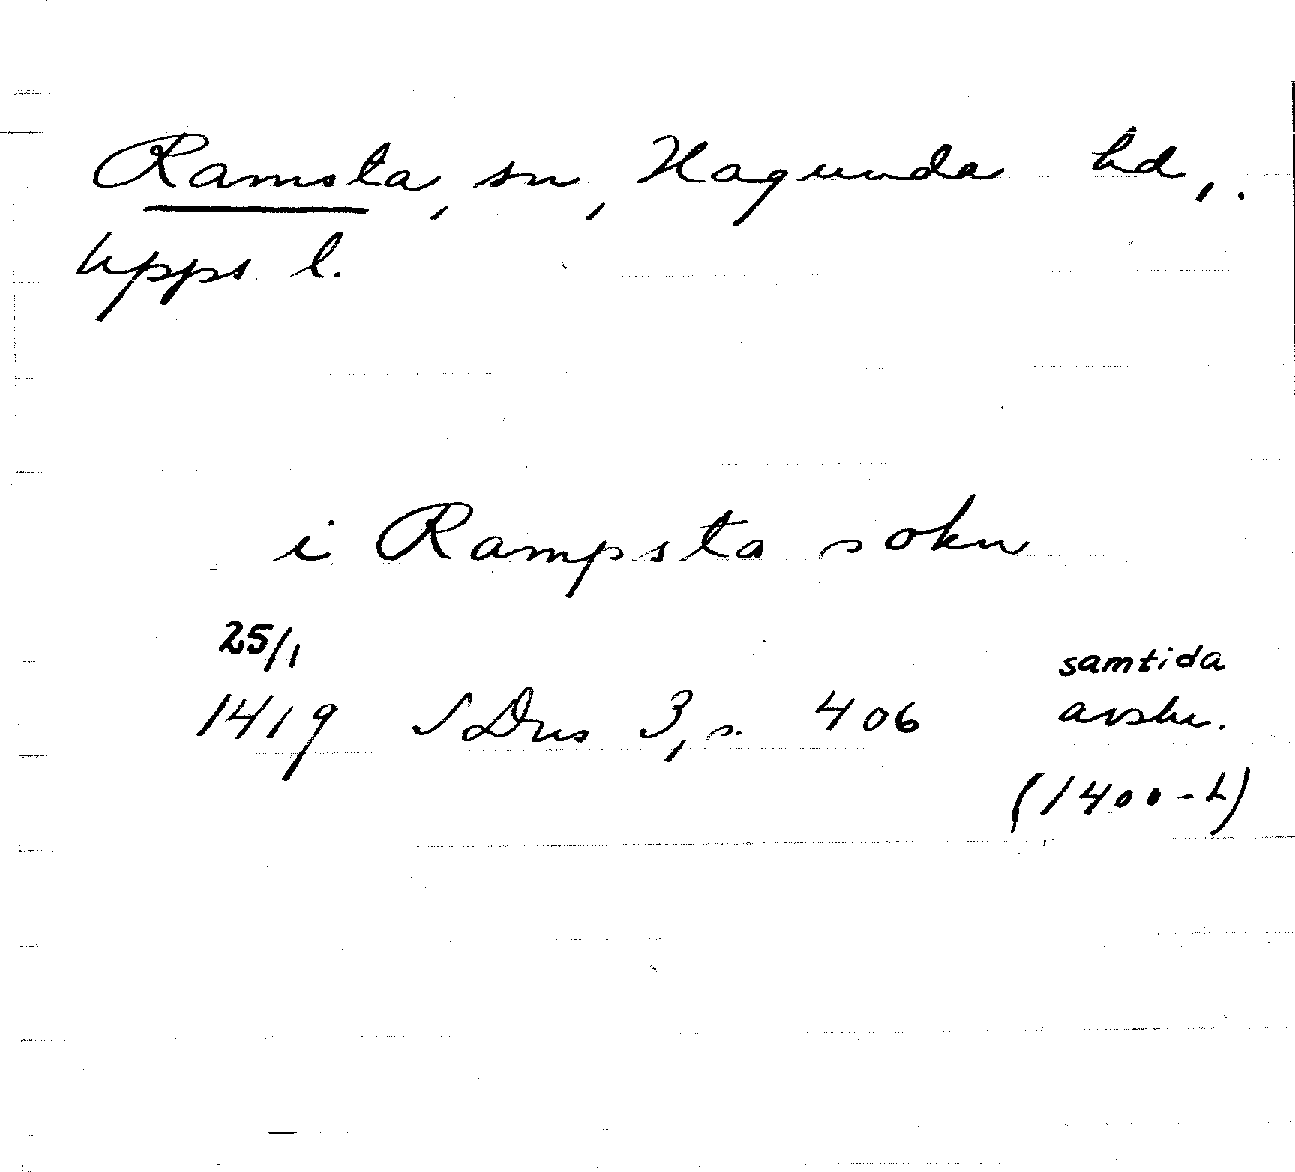 Ramsta, sn, Hagunda hd,.
Upps l.
i Rampsta sokn
25/1
1419 SDns 3, s. 406
samtida
avskr.
(1400-t)